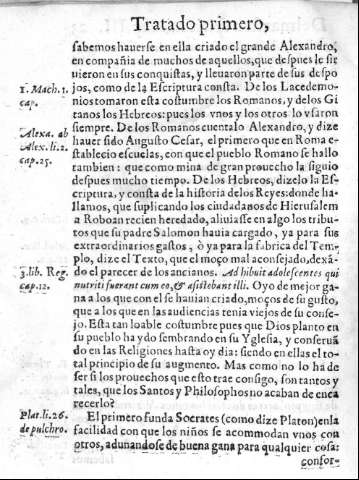 Tratado primero,
sabemos hauerse en ella criado el grande Alexandro,
en compañia de muchos de aquellos, que despues le sir
uieron en sus conquistas, y lleuaron parte de sus despo
1. Mach. 1. cap.
jos, como de la Escriptura consta. De los Lacedemo-
nios tomaron esta costumbre los Romanos, y de los Gi
tanos los Hebreos: pues los vnos y los otros lo vsaron
Alexa. ab Alex. li. 2. cap. 25.
siempre. De los Romanos cuentalo Alexandro, y dize
hauer sido Augusto Cesar, el primero que en Roma e-
stablecio escuelas, con que el pueblo Romano se hallo
tambien: que como mina de gran prouecho la siguio
despues mucho tiempo. De los Hebreos, dizelo la Es-
criptura, y consta de la historia delos Reyes: donde ha-
llamos, que suplicando los ciudadanos de Hierusalem
a Roboan recien heredado, aliuiasse en algo los tribu-
tos que su padre Salomon hauia cargado, ya para sus
extraordinarios gastos, ò ya para la fabrica del Tem-
plo, dize el Texto, que el moço mal aconsejado, dexã-
3. lib. Reg. cap. 12.
do el parecer de los ancianos. Adhibuit adolescentes qui
nutriti fuerant cum eo, & assistebant illi. Oyo de mejor ga-
na a los que con el se hauian criado, moços de su gusto,
que a los que en las audiencias tenia viejos de su conse-
jo. Esta tan loable costumbre pues que Dios planto en
su pueblo ha ydo sembrando en su Yglesia, y conseruã
do en las Religiones hasta oy dia: siendo en ellas el to-
tal principio de su augmento. Mas como no lo ha de
ser si los prouechos que esto trae consigo, son tantos y
tales, que los Santos y Philosophos no acaban de enca
recerlo?
Plat. li. 26. de pulchro.
El primero funda Socrates (como dize Platon) en la
facilidad con que los niños se acommodan vnos con
otros, adunandose de buena gana para qualquier cosa:
confor-